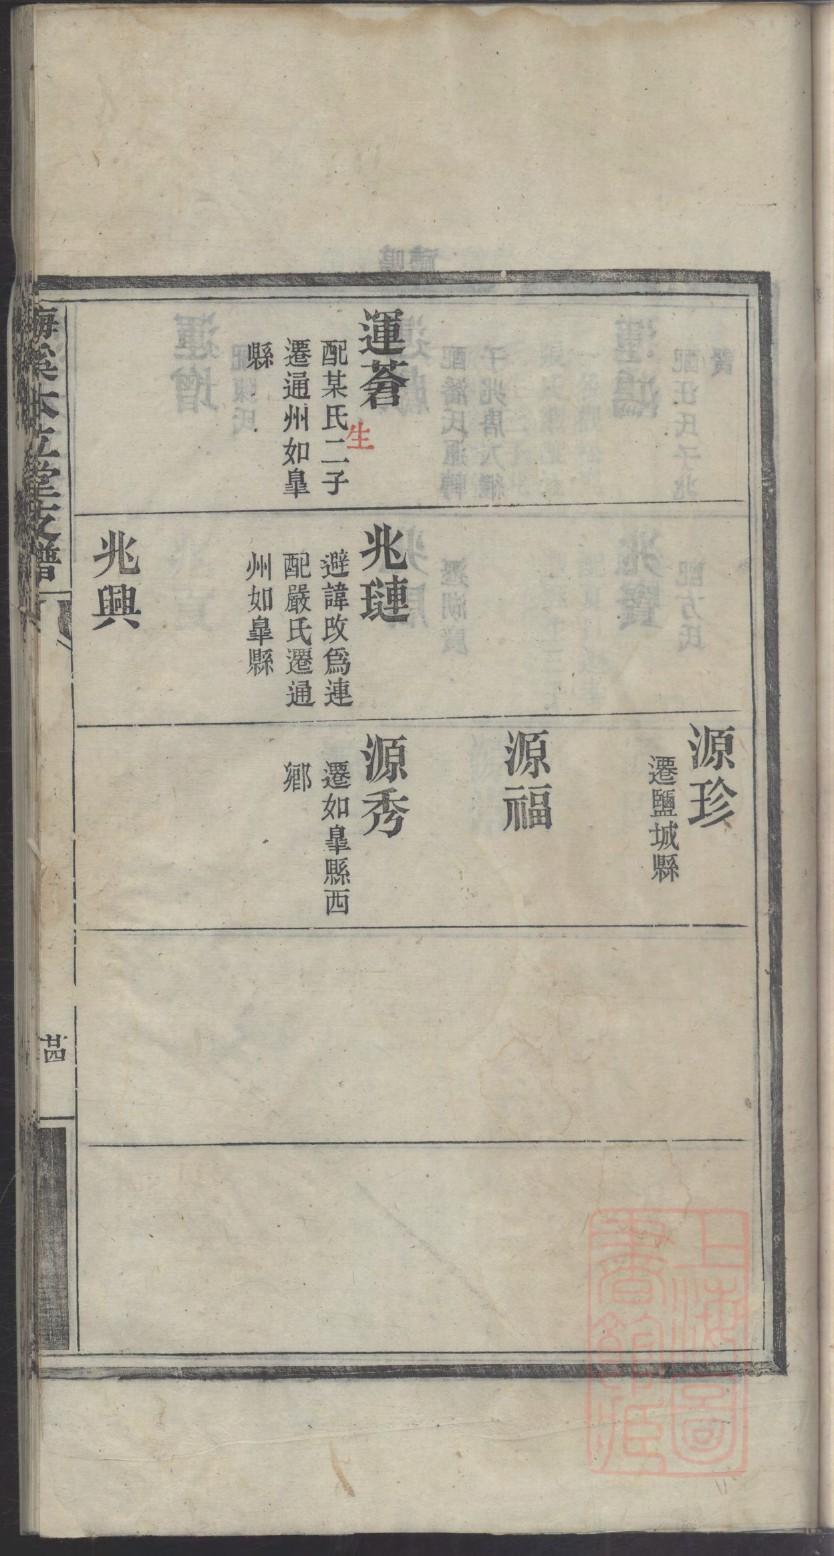 運蒼
配某氏二子
遷通州如臯
縣
生
兆璉
避諱改爲連
配嚴氏遷通
州如臯縣
兆興
源珍
遷鹽城縣
源福
源秀
遷如臯縣西
鄉
立堂支譜
廿四
上海圖書館藏